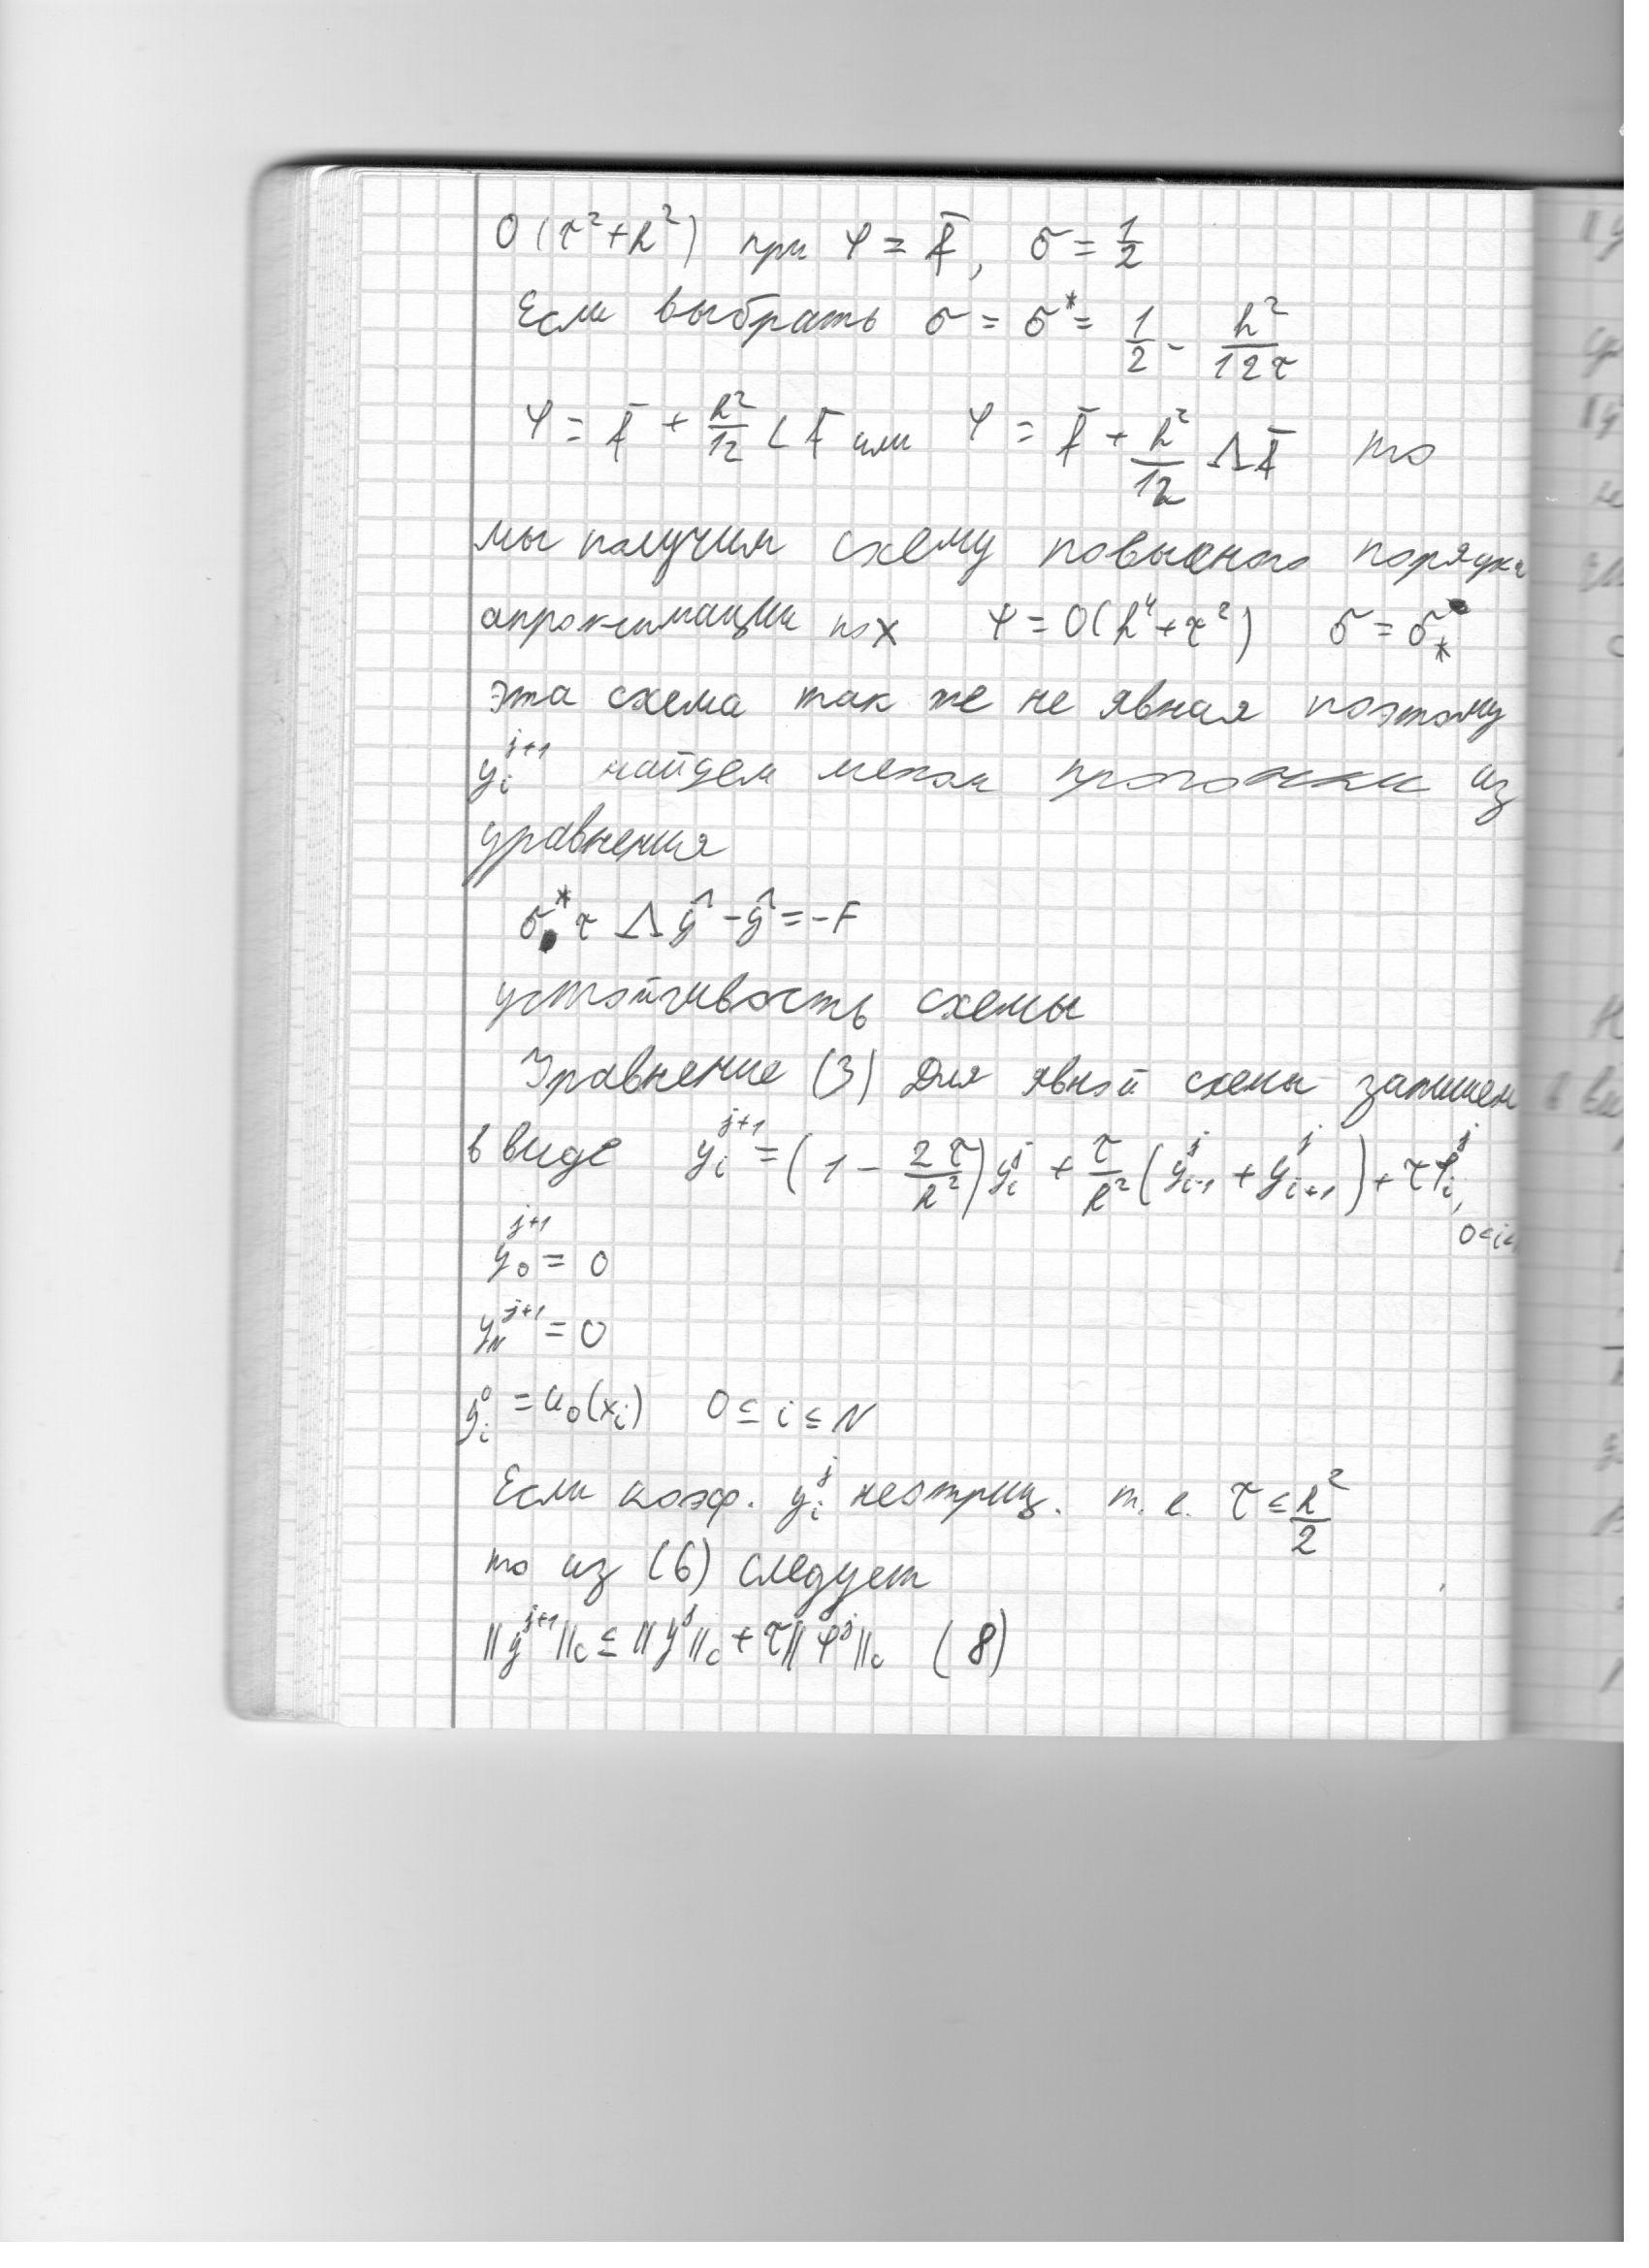 O(τ²+h²) при φ = f̄, σ = 1/2
Если выбрать σ = σ* = 1/2 - h²/12τ
φ = f̄ + h²/12 L f̄ или φ = f̄ + h²/12 Λ f̄ то
мы получим схему повысного порядка
апроксимации по x ψ = O(h⁴+τ²) σ = σ*
эта схема так же не явная поэтому
y_i^{j+1} найдем метом прогонки из
уравнения
σ* τ Λ ŷ - ŷ = -F
устойчивость схемы
Уравнение (3) Для явной схемы запишем
в виде y_i^{j+1} = (1 - 2τ/h²) y_i^j + τ/h² (y_{i-1}^j + y_{i+1}^j) + τφ_i^j,
0<i<
y_0^{j+1} = 0
y_N^{j+1} = 0
y_i^0 = u_0(x_i) 0 ≤ i ≤ N
Если коэф. y_i^j неотриц. т. е. τ ≤ h²/2
то из (6) следует
||y^{j+1}||_c ≤ ||y^j||_c + τ||φ^j||_c (8)